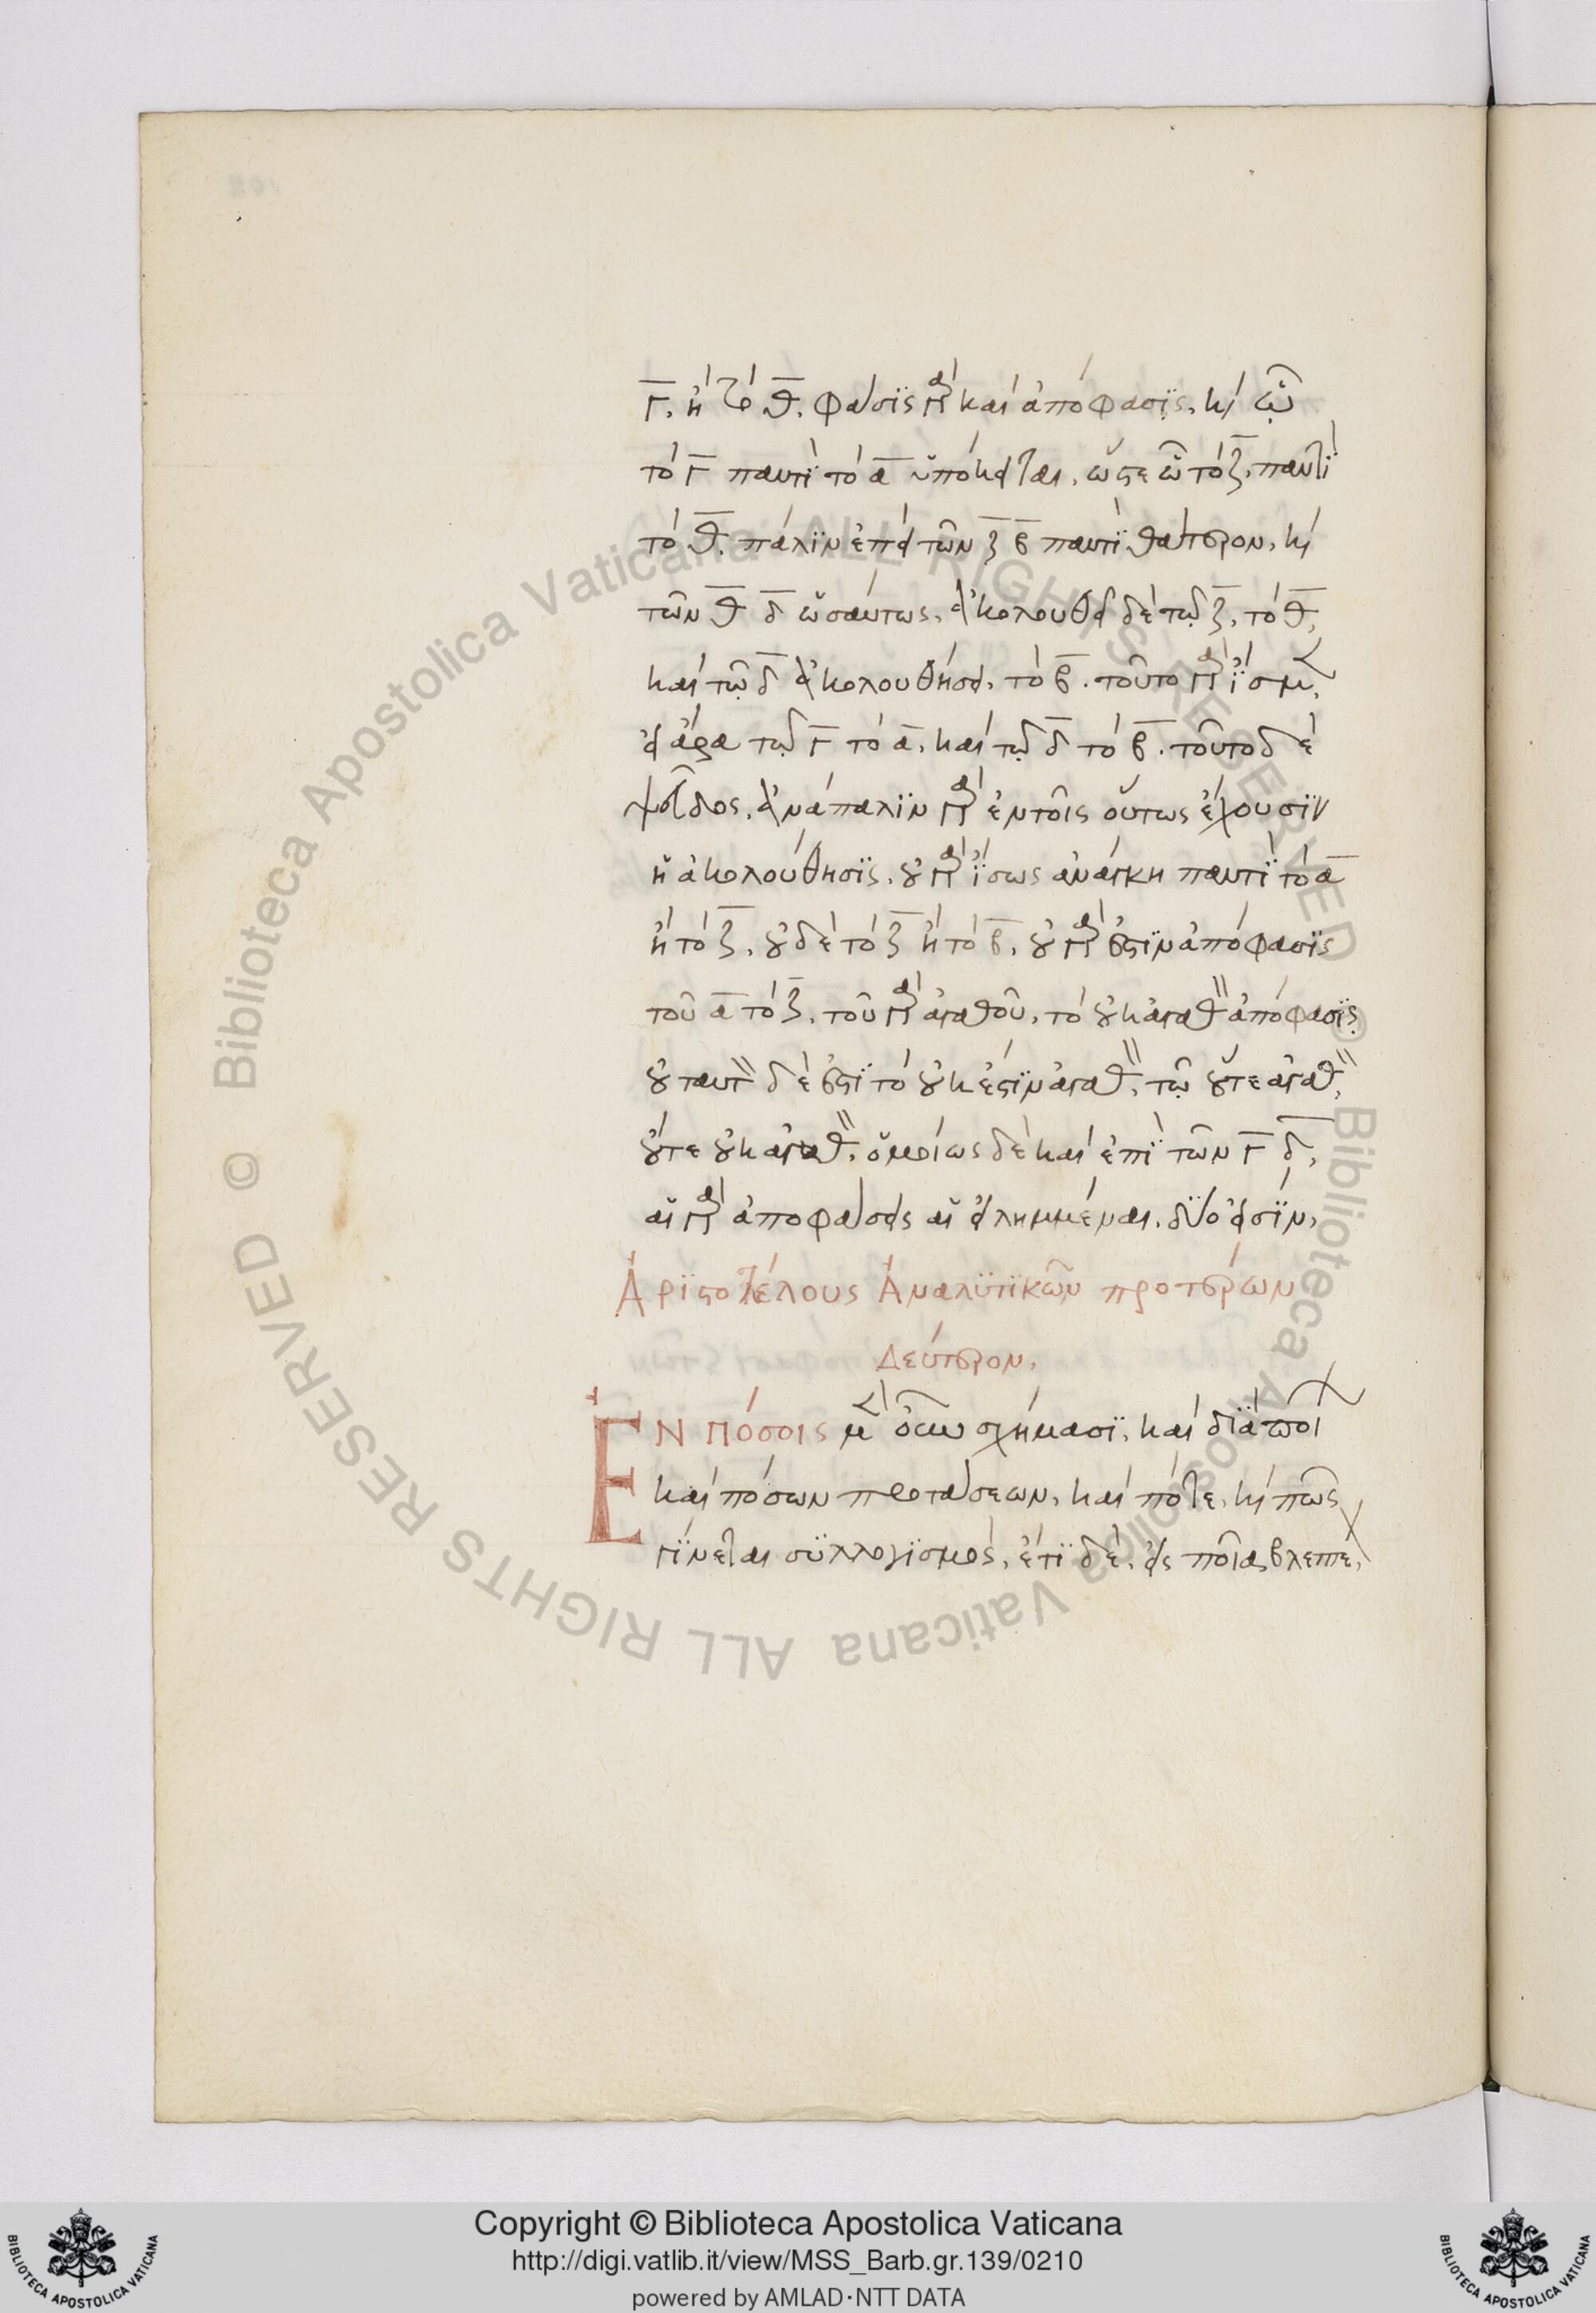 Γ. ἢ τὸ Θ. φάσις γὰρ καὶ ἀπόφασις. καὶ ᾧ
τὸ Γ παντὶ τὸ Α ὑπόκειται. ὥστε ᾧ τὸ Ζ. παντὶ
τὸ Θ. πάλιν ἐπεὶ τῶν Ζ Β παντὶ θάτερον. καὶ
τῶν Θ Δ ὡσαύτως. ἀκολουθεῖ δὲ τῷ Ζ. τὸ Θ,
καὶ τῷ Δ ἀκολουθήσει. τὸ Β. τοῦτο γὰρ ἴσμεν,
εἰ ἄρα τῷ Γ τὸ Α. καὶ τῷ Δ τὸ Β. τοῦτο δὲ
ψεῦδος. ἀνάπαλιν γὰρ ἐν τοῖς οὕτως ἔχουσιν
ἡ ἀκολούθησις. οὐ γὰρ ἴσως ἀνάγκη παντὶ τὸ Α
ἢ τὸ Ζ. οὐδὲ τὸ Ζ ἢ τὸ Β. οὐ γάρ ἐστιν ἀπόφασις
τοῦ Α τὸ Ζ. τοῦ γὰρ ἀγαθοῦ. τὸ οὐκ ἀγαθὸν ἀπόφασις
οὐ ταυτὸν δέ ἐστι τὸ οὐκ ἔστιν ἀγαθόν. τῷ οὔτε ἀγαθόν,
οὔτε οὐκ ἀγαθόν. ὁμοίως δὲ καὶ ἐπὶ τῶν Γ Δ,
αἱ γὰρ ἀποφάσεις αἱ εἰλημμέναι. δύο εἰσίν,
Ἀριστοτέλους Ἀναλυτικῶν προτέρων
Δεύτερον.
ἘΝ πόσοις μὲν οὖν σχήμασι, καὶ διὰ ποί
καὶ πόσων προτάσεων, καὶ πότε, καὶ πῶς
γίνεται συλλογισμός, ἔτι δὲ, εἰς ποῖα βλεπτέ
Copyright © Biblioteca Apostolica Vaticana
http://digi.vatlib.it/view/MSS_Barb.gr.139/0210
powered by AMLAD·NTT DATA